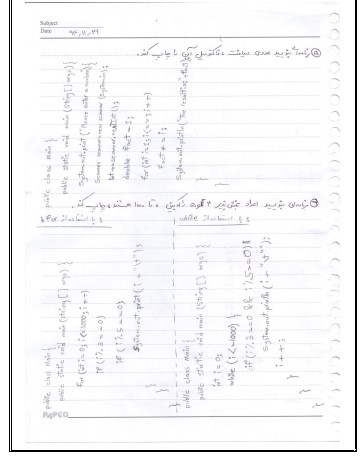 Subject
Date ۹۴,۱۱,۲۹
برنامه‌ای بنویسید عددی دریافت و فاکتوریل آن را چاپ کند.
public class Main {
public static void main (String[] args) {
System.out.print ("Please enter a number");
Scanner scanner = new Scanner (System.in);
int n = scanner.nextInt();
double fact = 1;
for (int i=1; i<=n; i++)
fact *= i;
System.out.println ("The result is" + fact);
برنامه‌ای بنویسید اعداد بخش پذیر ۳ و ۵ را چاپ کند.
با استفاده از for
public class Main {
public static void main (String[] args) {
for (int i=0; i<=1000; i++)
if (i%3==0)
if (i%5==0)
System.out.print (i + "\t");
با استفاده از while
public class Main {
public static void main (String[] args) {
int i=0;
while (i<=1000) {
if (i%3==0 && i%5==0) {
System.out.println (i + "\t");
i++;
PAPCO